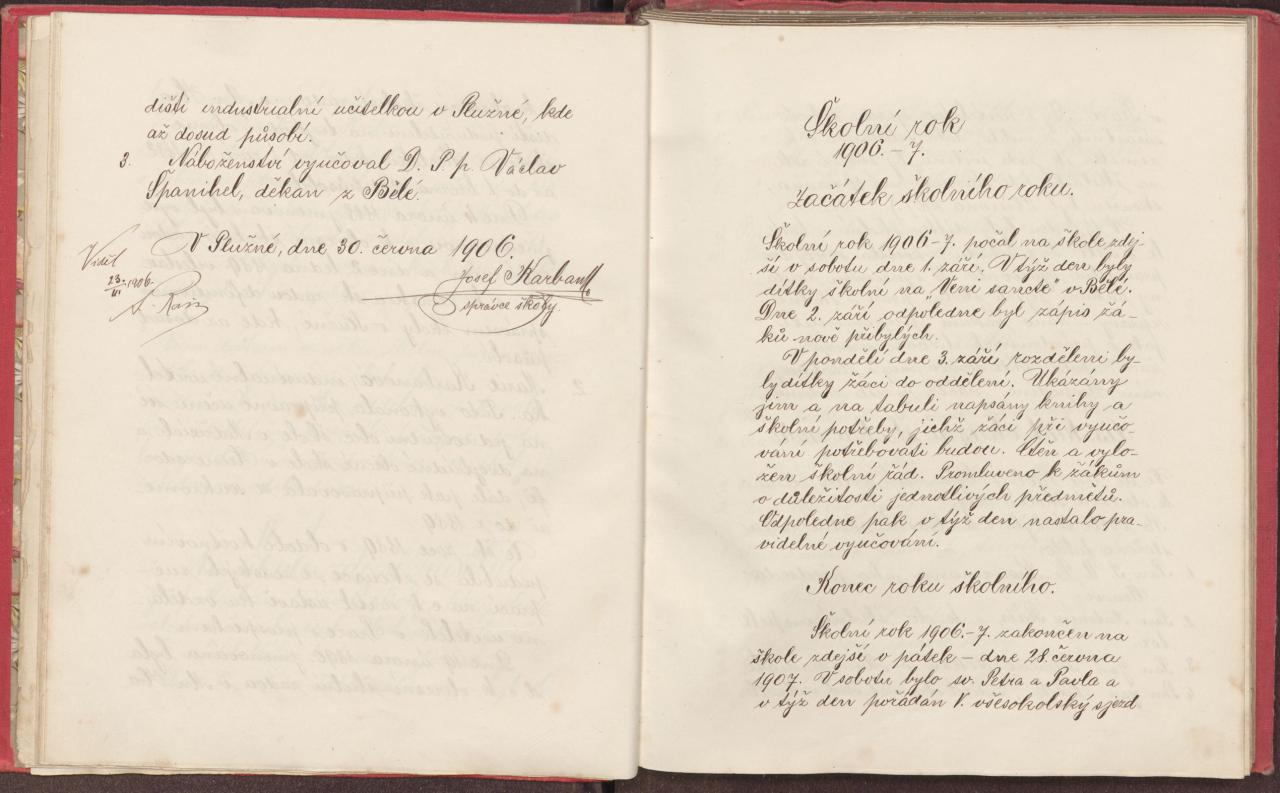 dišti industrialní učitelkou v Služné, kde
až dosud působí.
3. Náboženství vyučoval D. P. p. Václav
Španihel, děkan z Bělé.
V Služné, dne 30. června 1906.
Viděl
23. 1906.
Josef Karban
správce školy.
Školní rok
1906.-7.
Začátek školního roku.
Školní rok 1906-7. počal na škole zdej-
ší v sobotu dne 1. září. V týž den byly
dítky školní na „Veni sancte" v Bělé.
Dne 2. září odpoledne byl zápis žá-
ků nově přibylých.
V pondělí dne 3. září rozděleni by-
ly dítky žáci do oddělení. Ukázány
jim a na tabuli napsány knihy a
školní potřeby, jichž žáci při vyučo-
vání potřebovati budou. Čten a vylo-
žen školní řád. Promluveno k žákům
o důležitosti jednotlivých předmětů.
Odpoledne pak v týž den nastalo pra-
videlné vyučování.
Konec roku školního.
Školní rok 1906.-7. zakončen na
škole zdejší v pátek - dne 28. června
1907. V sobotu bylo sv. Petra a Pavla a
v týž den pořádán V. všesokolský sjezd